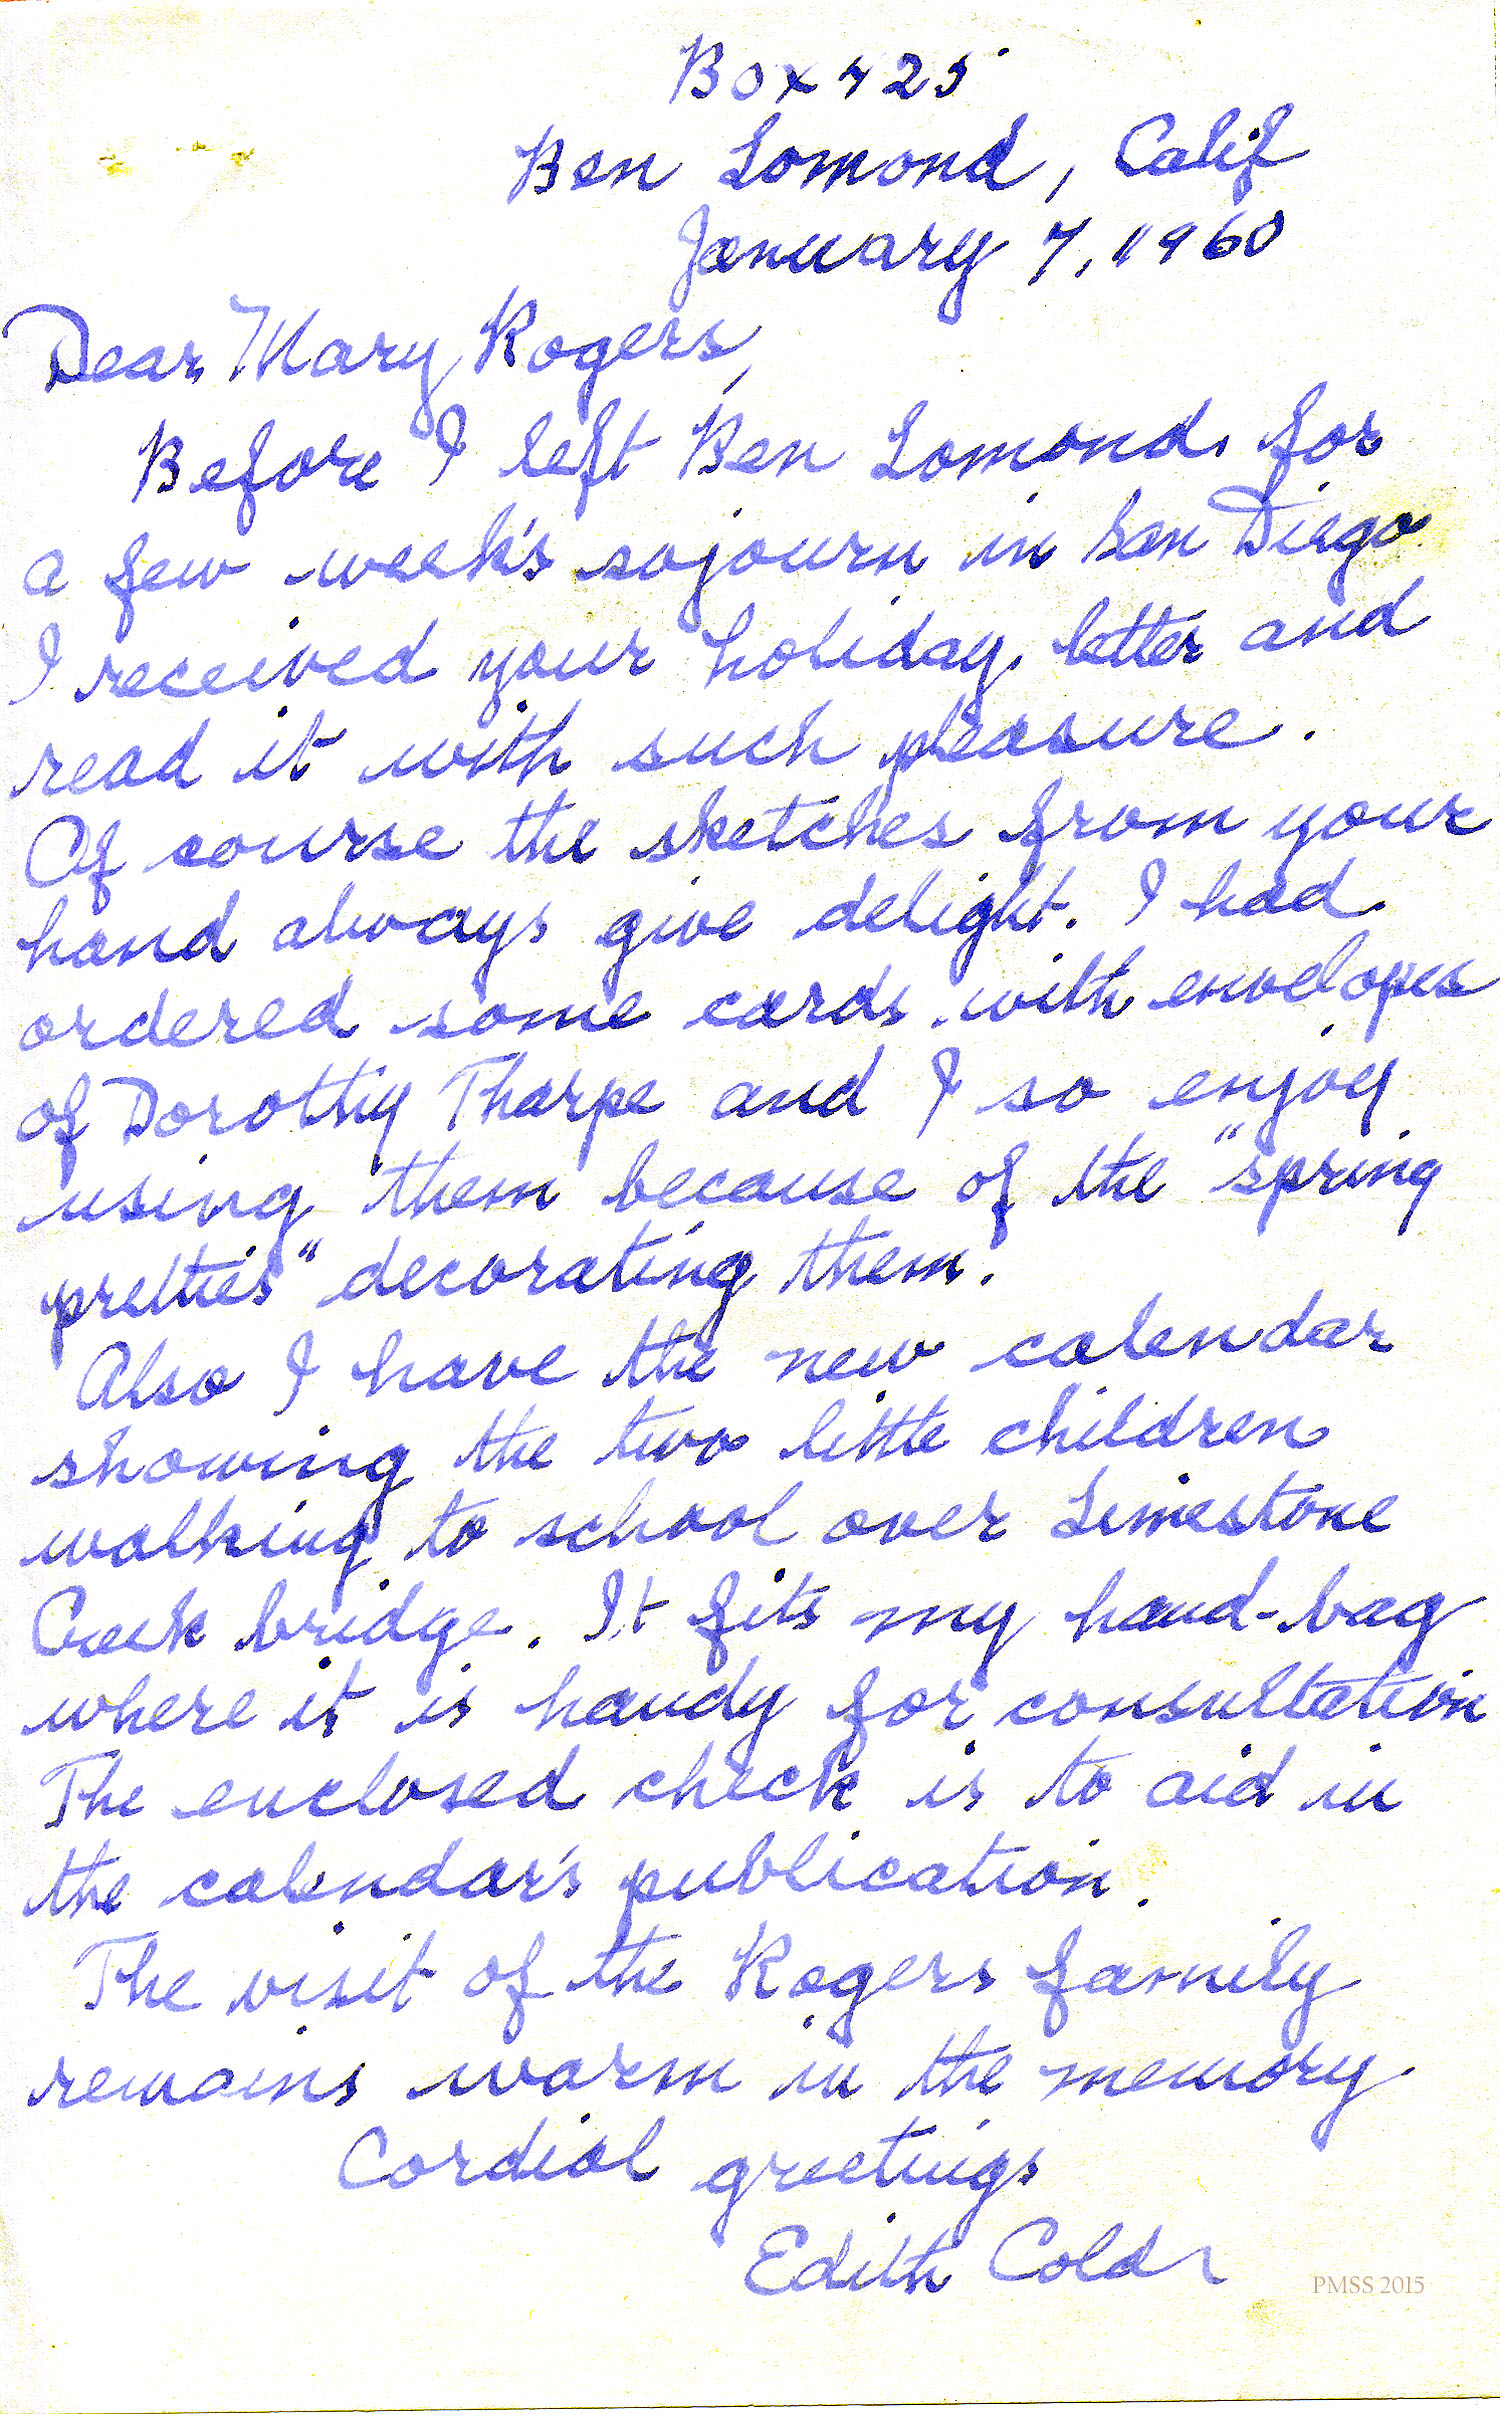 Box 425
Ben Lomond, Calif
January 7, 1960
Dear Mary Rogers,
Before I left Ben Lomond for
a few week's sojourn in San Diego
I received your holiday letter and
read it with such pleasure.
Of course the sketches from your
hand always give delight. I had
ordered some cards with envelopes
of Dorothy Tharpe and I so enjoy
using them because of the "spring
pretties" decorating them.
Also I have the new calendar
showing the two little children
walking to school over Limestone
Creek bridge. It fits my hand-bag
where it is handy for consultation
The enclosed check is to aid in
the calendar's publication.
The visit of the Rogers family
remains warm in the memory
Cordial greetings
Edith Cold
PMSS 2015